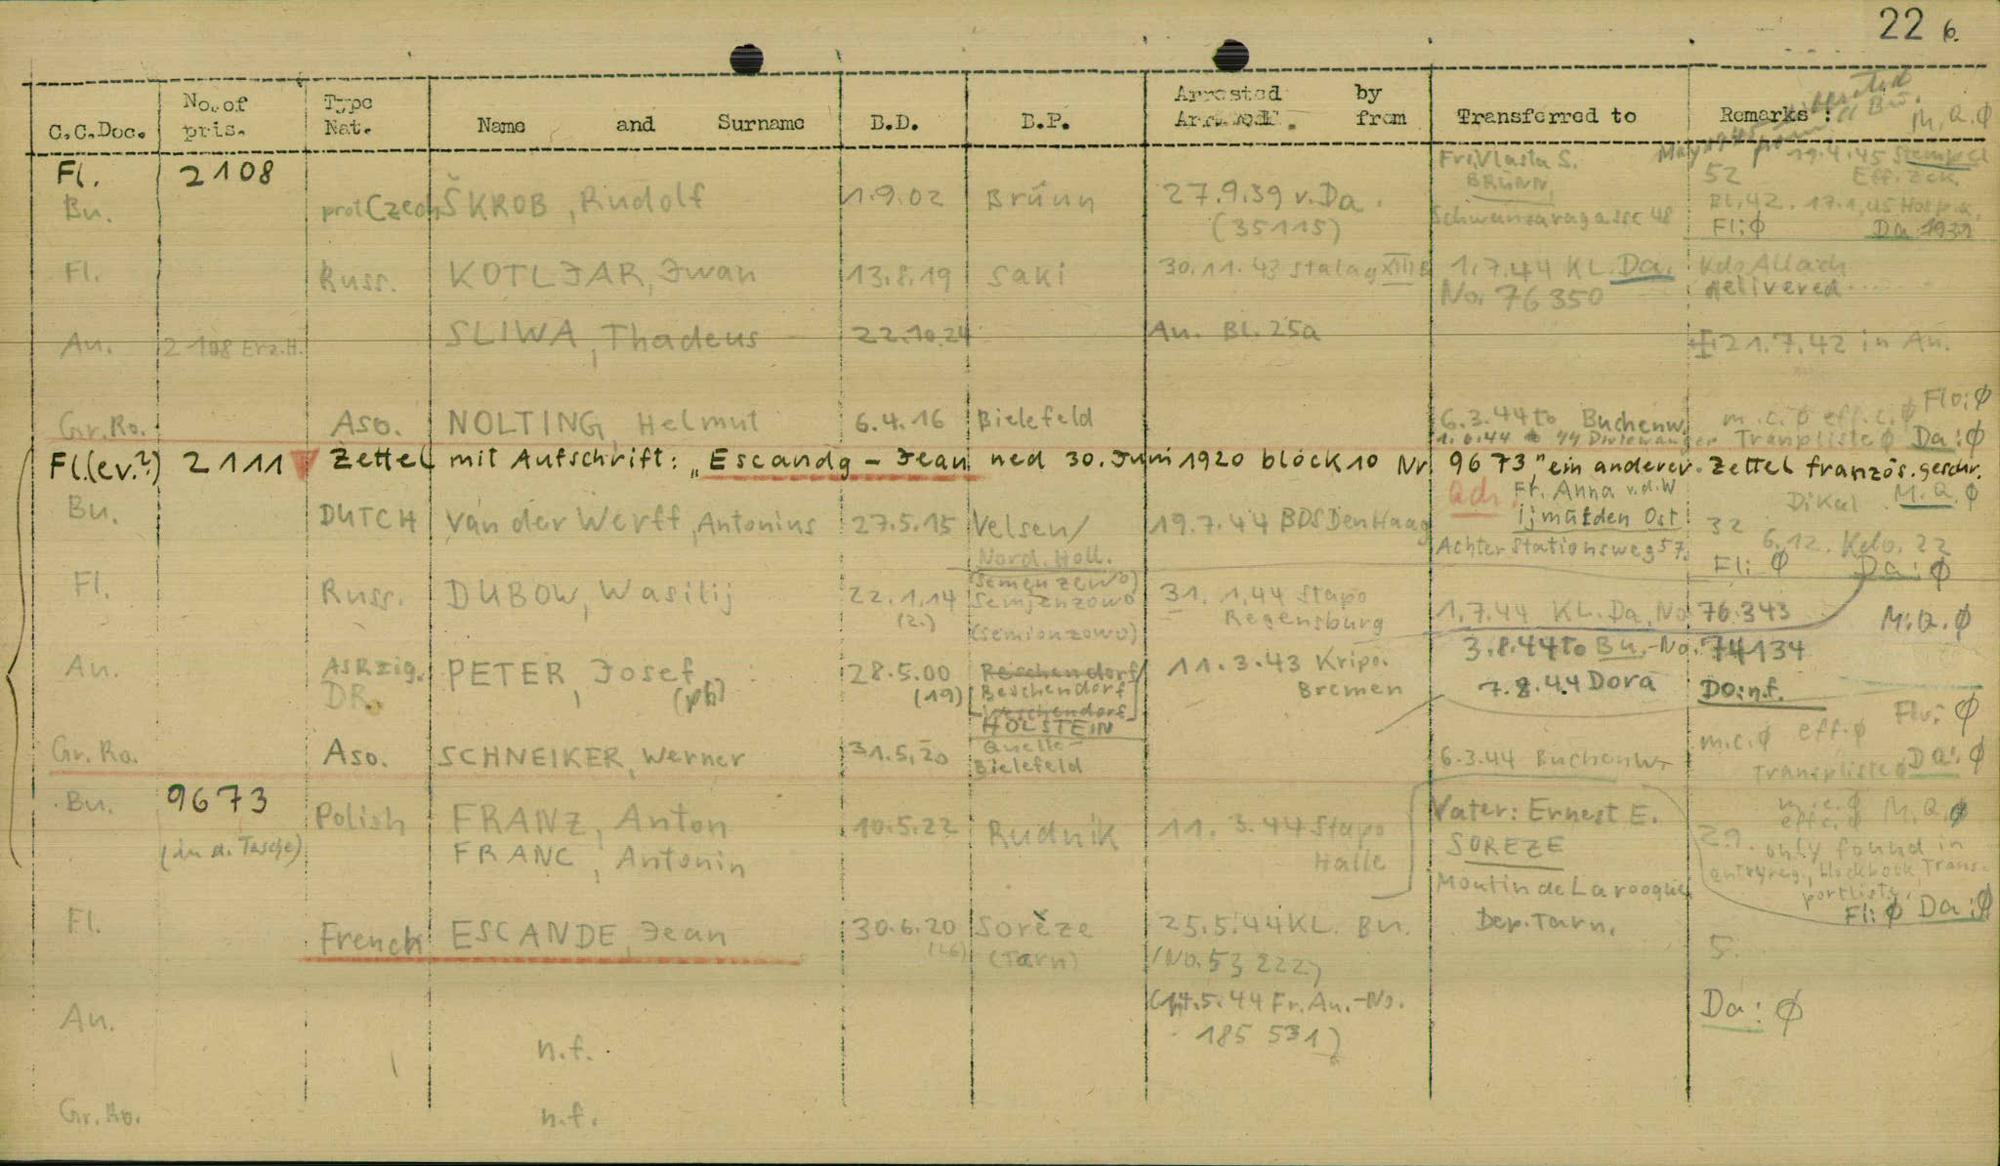 22 6.
C.C.Doc. No. of pris. Type Nat. Name and Surname B.D. B.P. Arrested by from Transferred to Remarks : M.Q.Ø
Fl. 2108 Fr. Vlasta S. 19.4.45 Stempel
BRÜNN 52 Eff. Zck.
Bu. prot Czech ŠKROB, Rudolf 1.9.02 Brünn 27.9.39 v. Da. Bl. 42. 17.1.45
(35115) Fl: Ø Da
Fl. Russ. KOTLJAR, Iwan 13.8.19 Saki 30.11.43 Stalag XIII B 1.7.44 KL. Da. Kdo Allach
No. 76350 delivered
An. 2108 Erz.H. SLIWA, Thadeus 22.10.24 An. Bl. 25a 21.7.42 in An.
Gr. Ro. Aso. NOLTING, Helmut 6.4.16 Bielefeld 6.3.44 to Buchenw. m.c. Ø eff.c. Ø Flo: Ø
Tranpliste Ø Da: Ø
Fl.(ev.?) 2111 Zettel mit Aufschrift: „Escandg – Jean ned 30. Juni 1920 block 10 Nr 9673" ein anderer Zettel französ. geschr.
Adr. Fr. Anna v.d.W Dikal M.Q. Ø
Bu. DUTCH Van der Werff, Antonius 27.5.15 Velsen/ 19.7.44 BDS Den Haag Ijmuiden Ost 32 6.12. Kdo. 22
Nord. Holl. Achter Stationsweg 57. Fl: Ø Da: Ø
(Semenzewo)
Fl. Russ. DUBOW, Wasilij 22.1.14 Semjenzowo 31.1.44 Stapo 1.7.44 KL. Da. No. 76343 M.Q. Ø
(2.) (Semionzowo) Regensburg
3.8.44 to Bu.-No. 74134
An. ASR zig. PETER, Josef 28.5.00 Reschendorf/ 11.3.43 Kripo.
DR. (ph) (19) [Beschendorf Bremen 7.8.44 Dora Do: n.f.
HOLSTEIN
Gr. Ro. Aso. SCHNEIKER, Werner 31.5.20 Quelle- 6.3.44 Buchenw. m.c. Ø eff. Ø Flo: Ø
Bielefeld Transpliste Ø Da: Ø
Bu. 9673 Polish FRANZ, Anton 10.5.22 Rudnik 11.3.44 Stapo Vater: Ernest E. m.c. Ø M.Q. Ø
(in d. Tasche) FRANC, Antonin Halle SOREZE eff.c. Ø
29. only found in
Moutin de Larooque entryreg., blockbook, Trans-
portlists.
Fl: Ø Da: Ø
Fl. French ESCANDE, Jean 30.6.20 Sorèze 25.5.44 KL. Bu. Dep. Tarn. 5.
(Tarn) (No. 53222)
An. (14.5.44 Fr. Au.-No. Da: Ø
n.f. 185 531)
Gr. Ro. n.f.